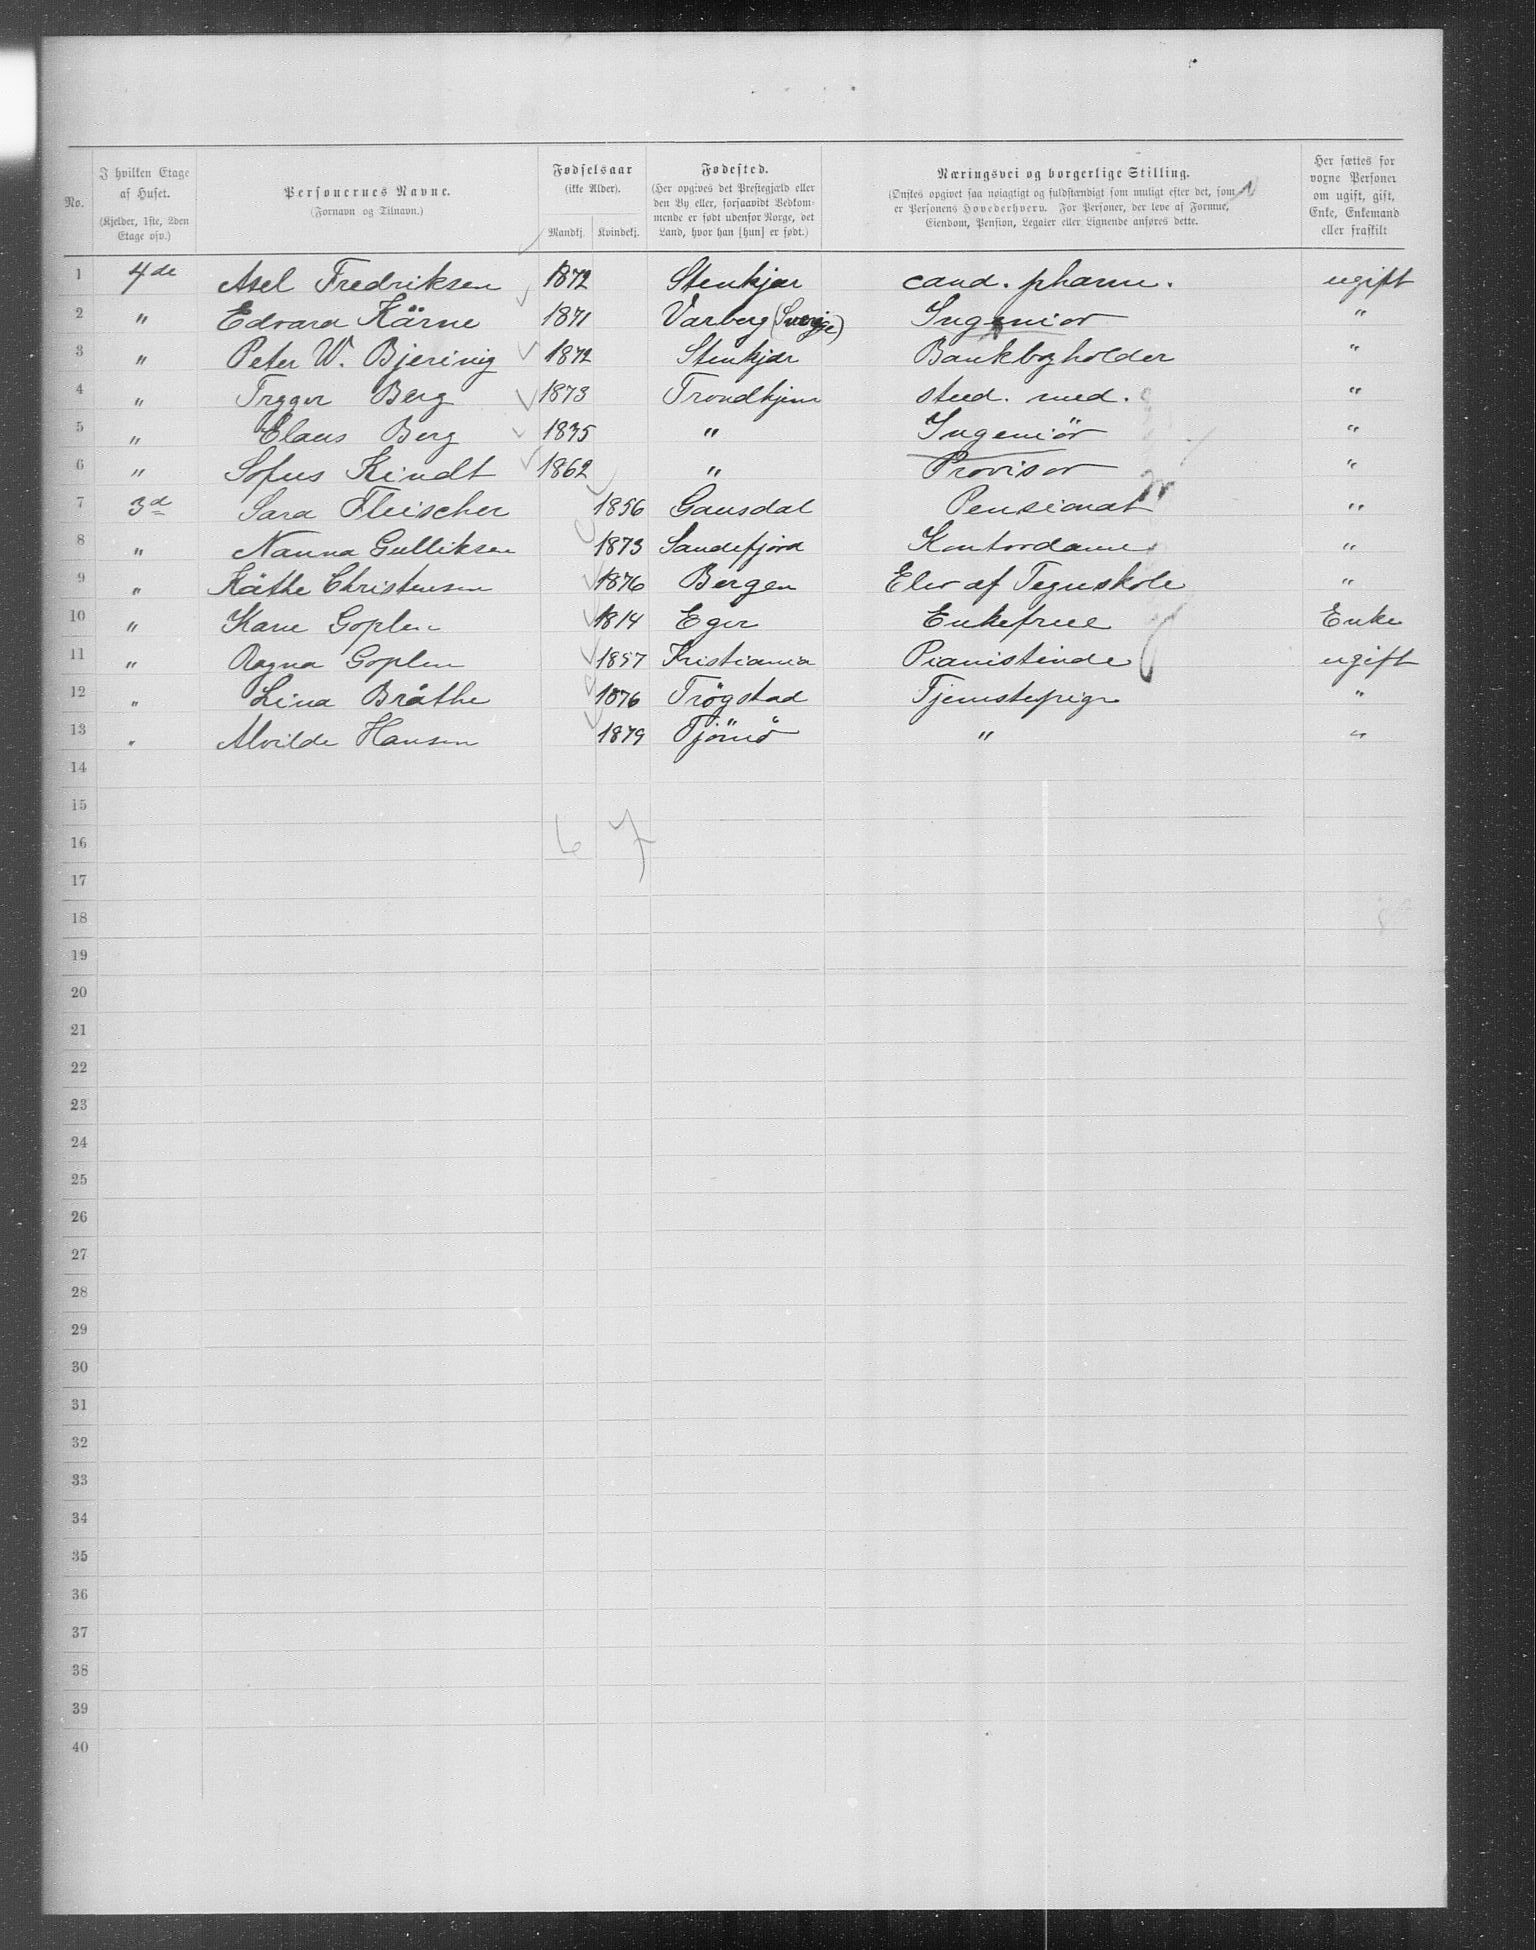 No. | I hvilken Etage af Huset. (Kjelder, 1ste, 2den Etage osv.) | Personernes Navne. (Fornavn og Tilnavn.) | Fødselsaar (ikke Alder). Mandkj. Kvindekj. | Fødested. (Her opgives det Prestegjæld eller den By eller, forsaavidt Vedkommende er født udenfor Norge, det Land, hvor han [hun] er født.) | Næringsvei og borgerlige Stilling. (Ønskes opgivet saa nøiagtigt og fuldstændigt som muligt efter det, som er Personens Hovederhverv. For Personer, der leve af Formue, Eiendom, Pension, Legater eller Lignende anføres dette.) | Her sættes for voxne Personer om ugift, gift, Enke, Enkemand eller fraskilt
1 4de Axel Fredriksen 1872 Stenkjær cand. pharm. ugift
2 " Edvard Kärne 1871 Varberg (Sverige) Ingeniør "
3 " Peter W. Bjering 1872 Stenkjær Bankbogholder "
4 " Trygve Berg 1873 Trondhjem stud. med. "
5 " Claus Berg 1875 " Ingeniör "
6 " Sofus Kindt 1862 " Provisor "
7 3d Sara Fleischer 1856 Gausdal Pensionat "
8 " Nanna Gulliksen 1873 Sandefjord Kontordame "
9 " Käthe Christensen 1876 Bergen Elev af Tegneskole "
10 " Karen Goplen 1814 Eger Enkefrue Enke
11 " Ragna Goplen 1857 Kristiania Pianistinde ugift
12 " Lina Bråthe 1876 Trögstad Tjenstepige "
13 " Alvilde Hansen 1879 Tjömö " "
14
15
16 6 7
17
18
19
20
21
22
23
24
25
26
27
28
29
30
31
32
33
34
35
36
37
38
39
40